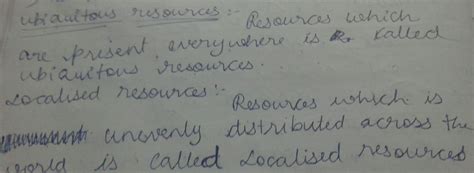 ubiquitous resources:- Resources which
are present everywhere is called
ubiquitous resources.
Localised resources:-
Resources which is
unevenly distributed across the
world is called Localised resources